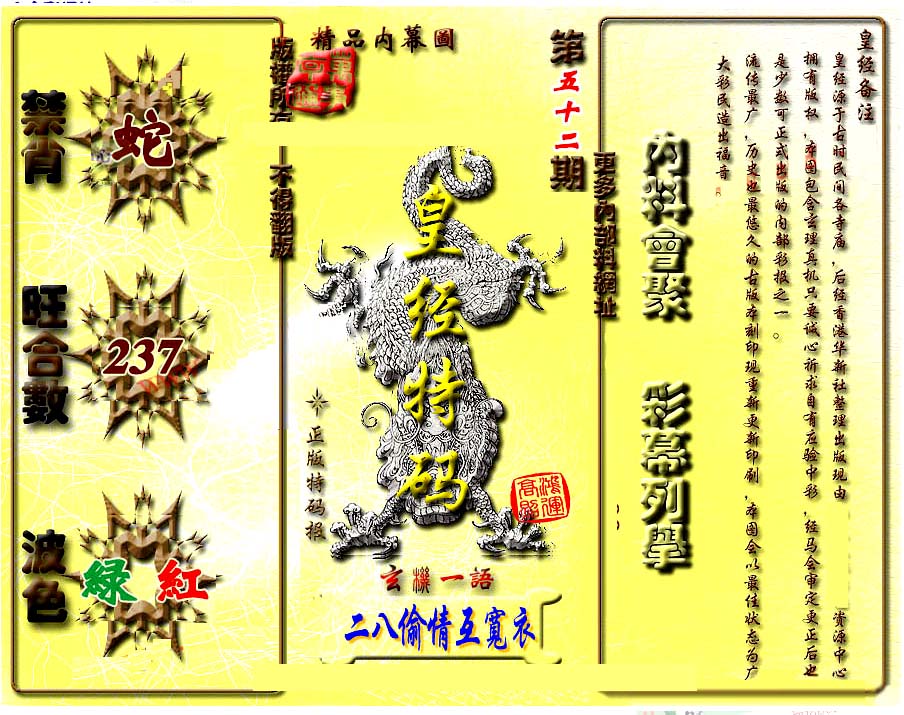 精品内幕圖
第五十二期
版權所有
不得翻版
禁肖
蛇
旺合數
237
波色
綠 紅
皇经特码
正版特码报
鸿運
高照
玄機一語
二八偷情互寬衣
更多內部料網址
内料會聚
彩幕列舉
皇经备注
皇经源于古时民间各寺庙，后经香港华新社整理出版现由 资源中心
拥有版权，本图包含玄理真机只要诚心祈求自有应验中彩，经马会审定更正后也
是少数可正式出版的内部彩报之一。
流传最广，历史也最悠久的古版本刻印现重新更新印刷，本图会以最佳状态为广
大彩民造出福音